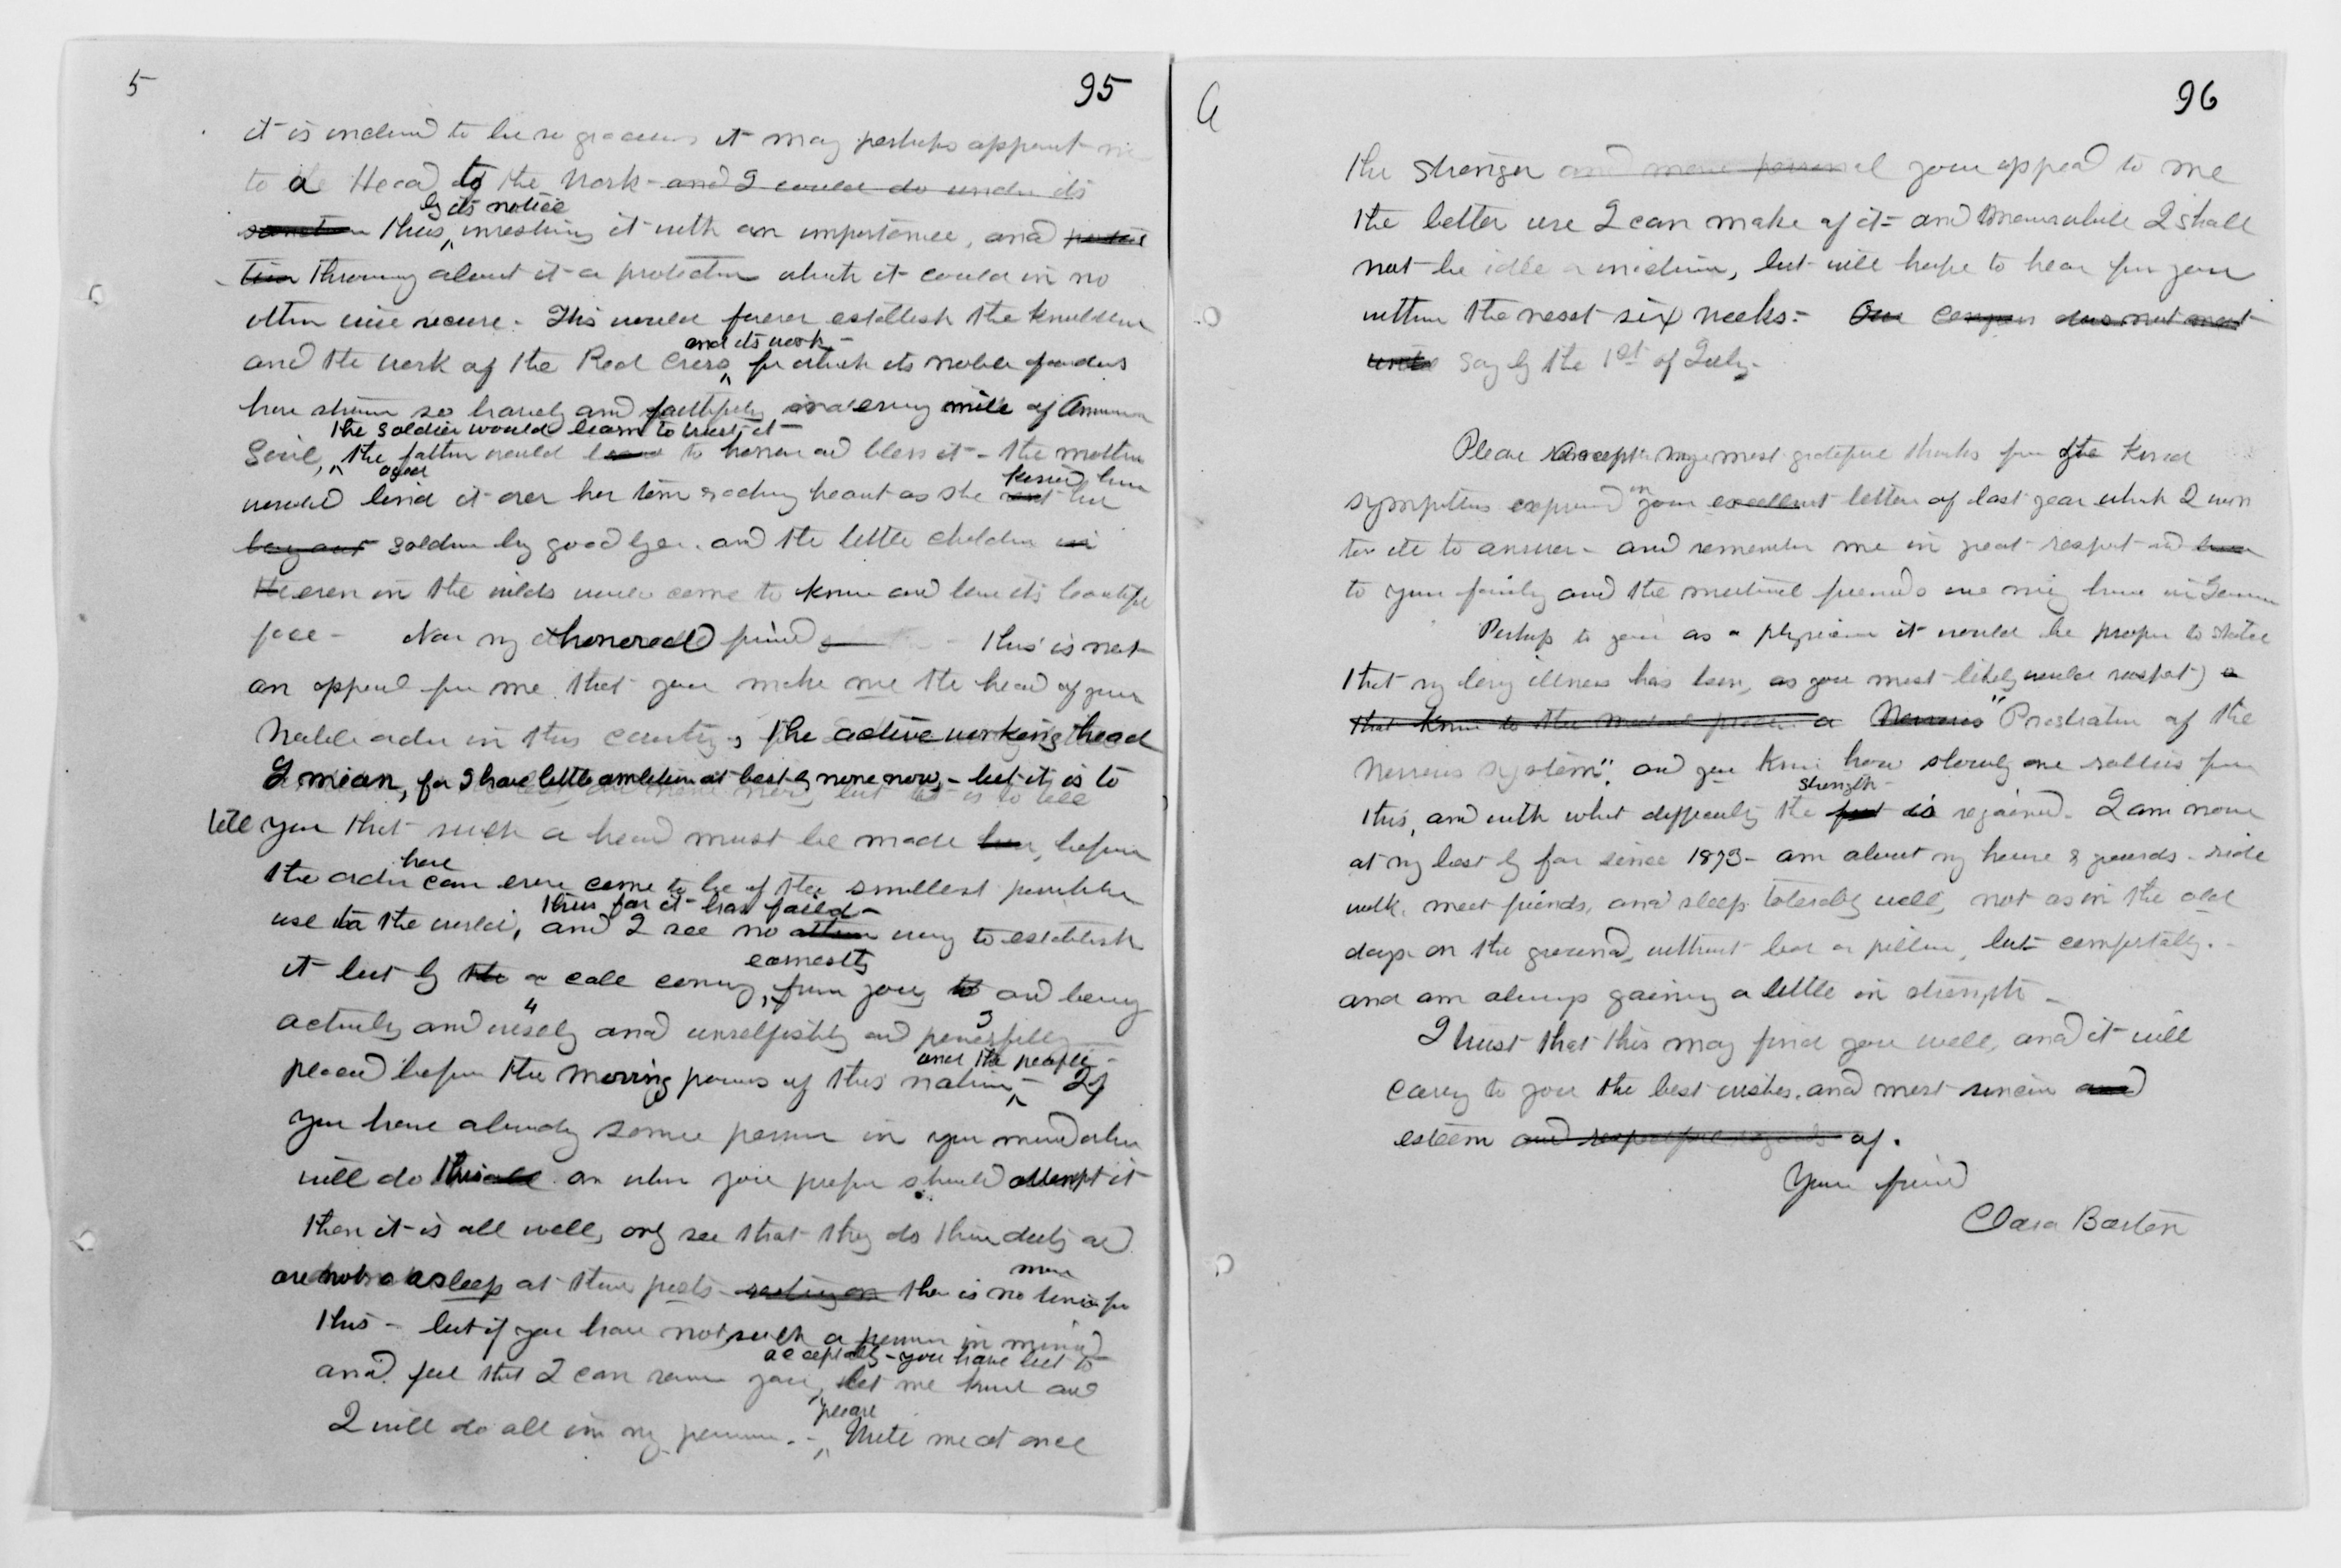 5
95
it is inclined to be so gracious it may perhaps appoint me
to a Head to the Work - and I could do under its
by its notice
sanction thus investing it with an importance, and
throwing about it a protection which it could in no
other wise secure - This would forever establish the knowledge
and its work -
and the work of the Red Cross, for which its noble founders
have striven so bravely and faithfully on every mile of American
the soldier would learn to trust it -
Soil, the father would learn to honor and bless it - the mother
would bind it over her torn aching heart as she kissed her
soldier boy good bye. and the little children in
the even in the wilds would come to know and love its beautiful
face - Now my honored friend this is not
an appeal for me that you make me the head of your
Noble order in this country, the active working head
I mean, for I have little ambition at best & none now, - but it is to
tell you that such a head must be made here, before
here
the order can ever come to be of the smallest possible
thus far it has failed -
use to the world, and I see no other way to establish
earnestly
it but by the a call coming, from you, to and being
actively and wisely and unselfishly and powerfully
and the people -
placed before the moving powers of this nation - If
you have already some person in your mind who
will do this all or who you prefer should attempt it
then it is all well, only see that they do their duty and
are not asleep at their posts - there is no time for
more
this - but if you have not such a person in mind
acceptably - you have but to
and feel that I can serve you, let me know and
please
I will do all in my power. - Write me at once
96
the stronger and more personal your appeal to me
the better use I can make of it - and meanwhile I shall
not be idle, but will hope to hear from you
within the next six weeks - Our Congress does not meet
until say by the 1st of July.
Please accept my most grateful thanks for the kind
sympathies expressed in your excellent letter of last year which I was
too ill to answer - and remember me in great respect and
to your family and the mutual friends we may have in Geneva
Perhaps to you as a physician it would be proper to state
that my long illness has been, as you most likely would suspect) a
that known to the medical a Nervous "Prostration of the
Nervous System". and you know how slowly one rallies from
strength
this, and with what difficulty the is regained. I am now
at my best by far since 1873 - am about my house & grounds - ride
walk, meet friends, and sleep tolerably well, not as in the old
days on the ground, without bed or pillow, but comfortably. -
and am always gaining a little in strength -
I trust that this may find you well, and it will
carry to you the best wishes, and most sincere and
esteem and respectful regards of.
Your friend
Clara Barton